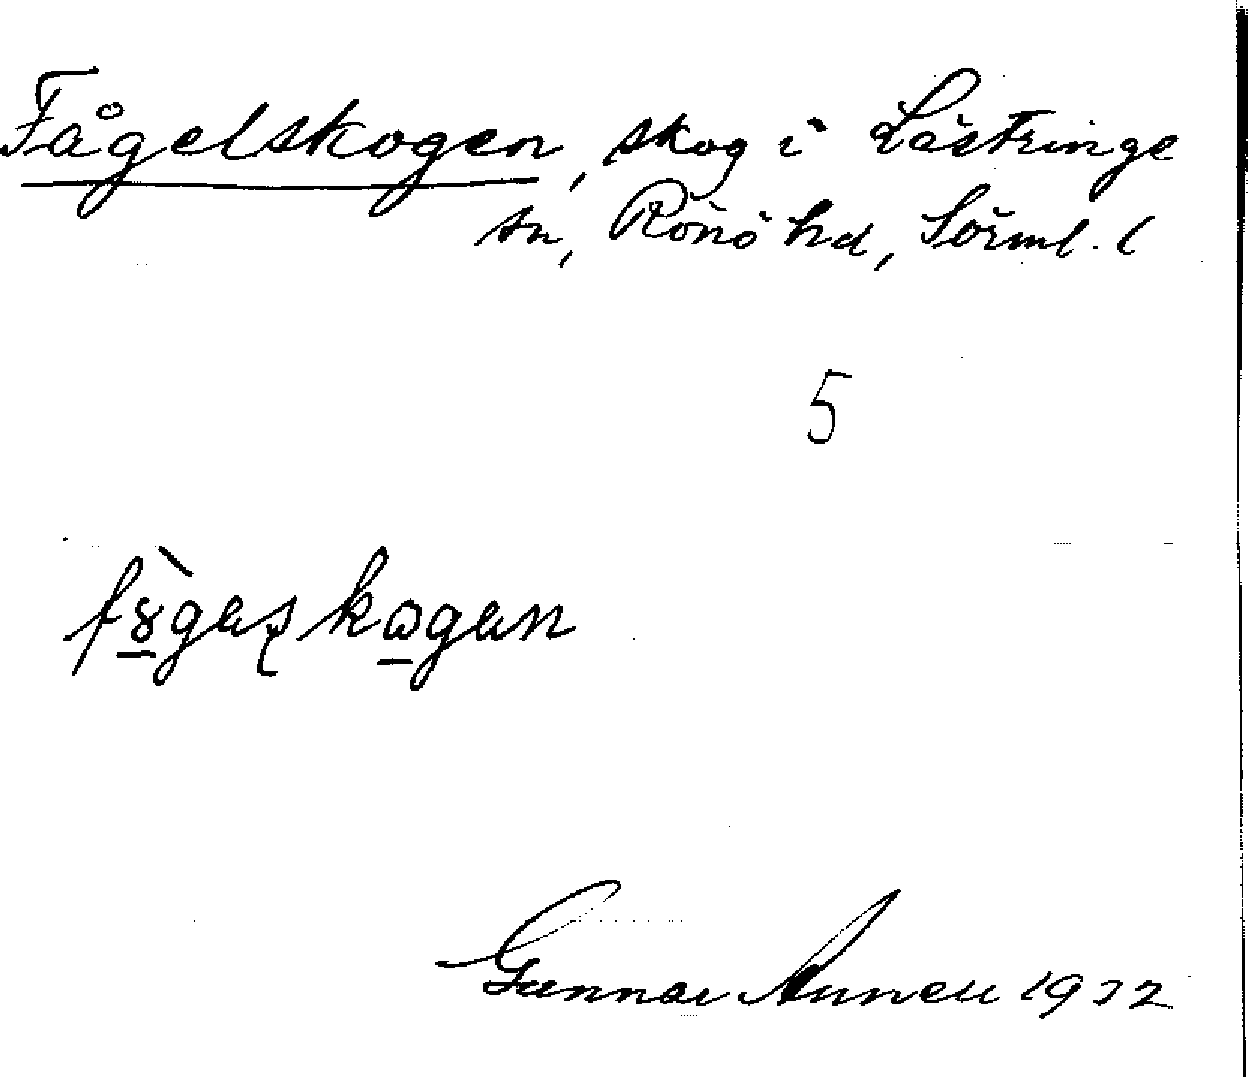 Fågelskogen, skog i Lästringe
sn, Rönö hd, Sörml. (
5
Gunnar 1932